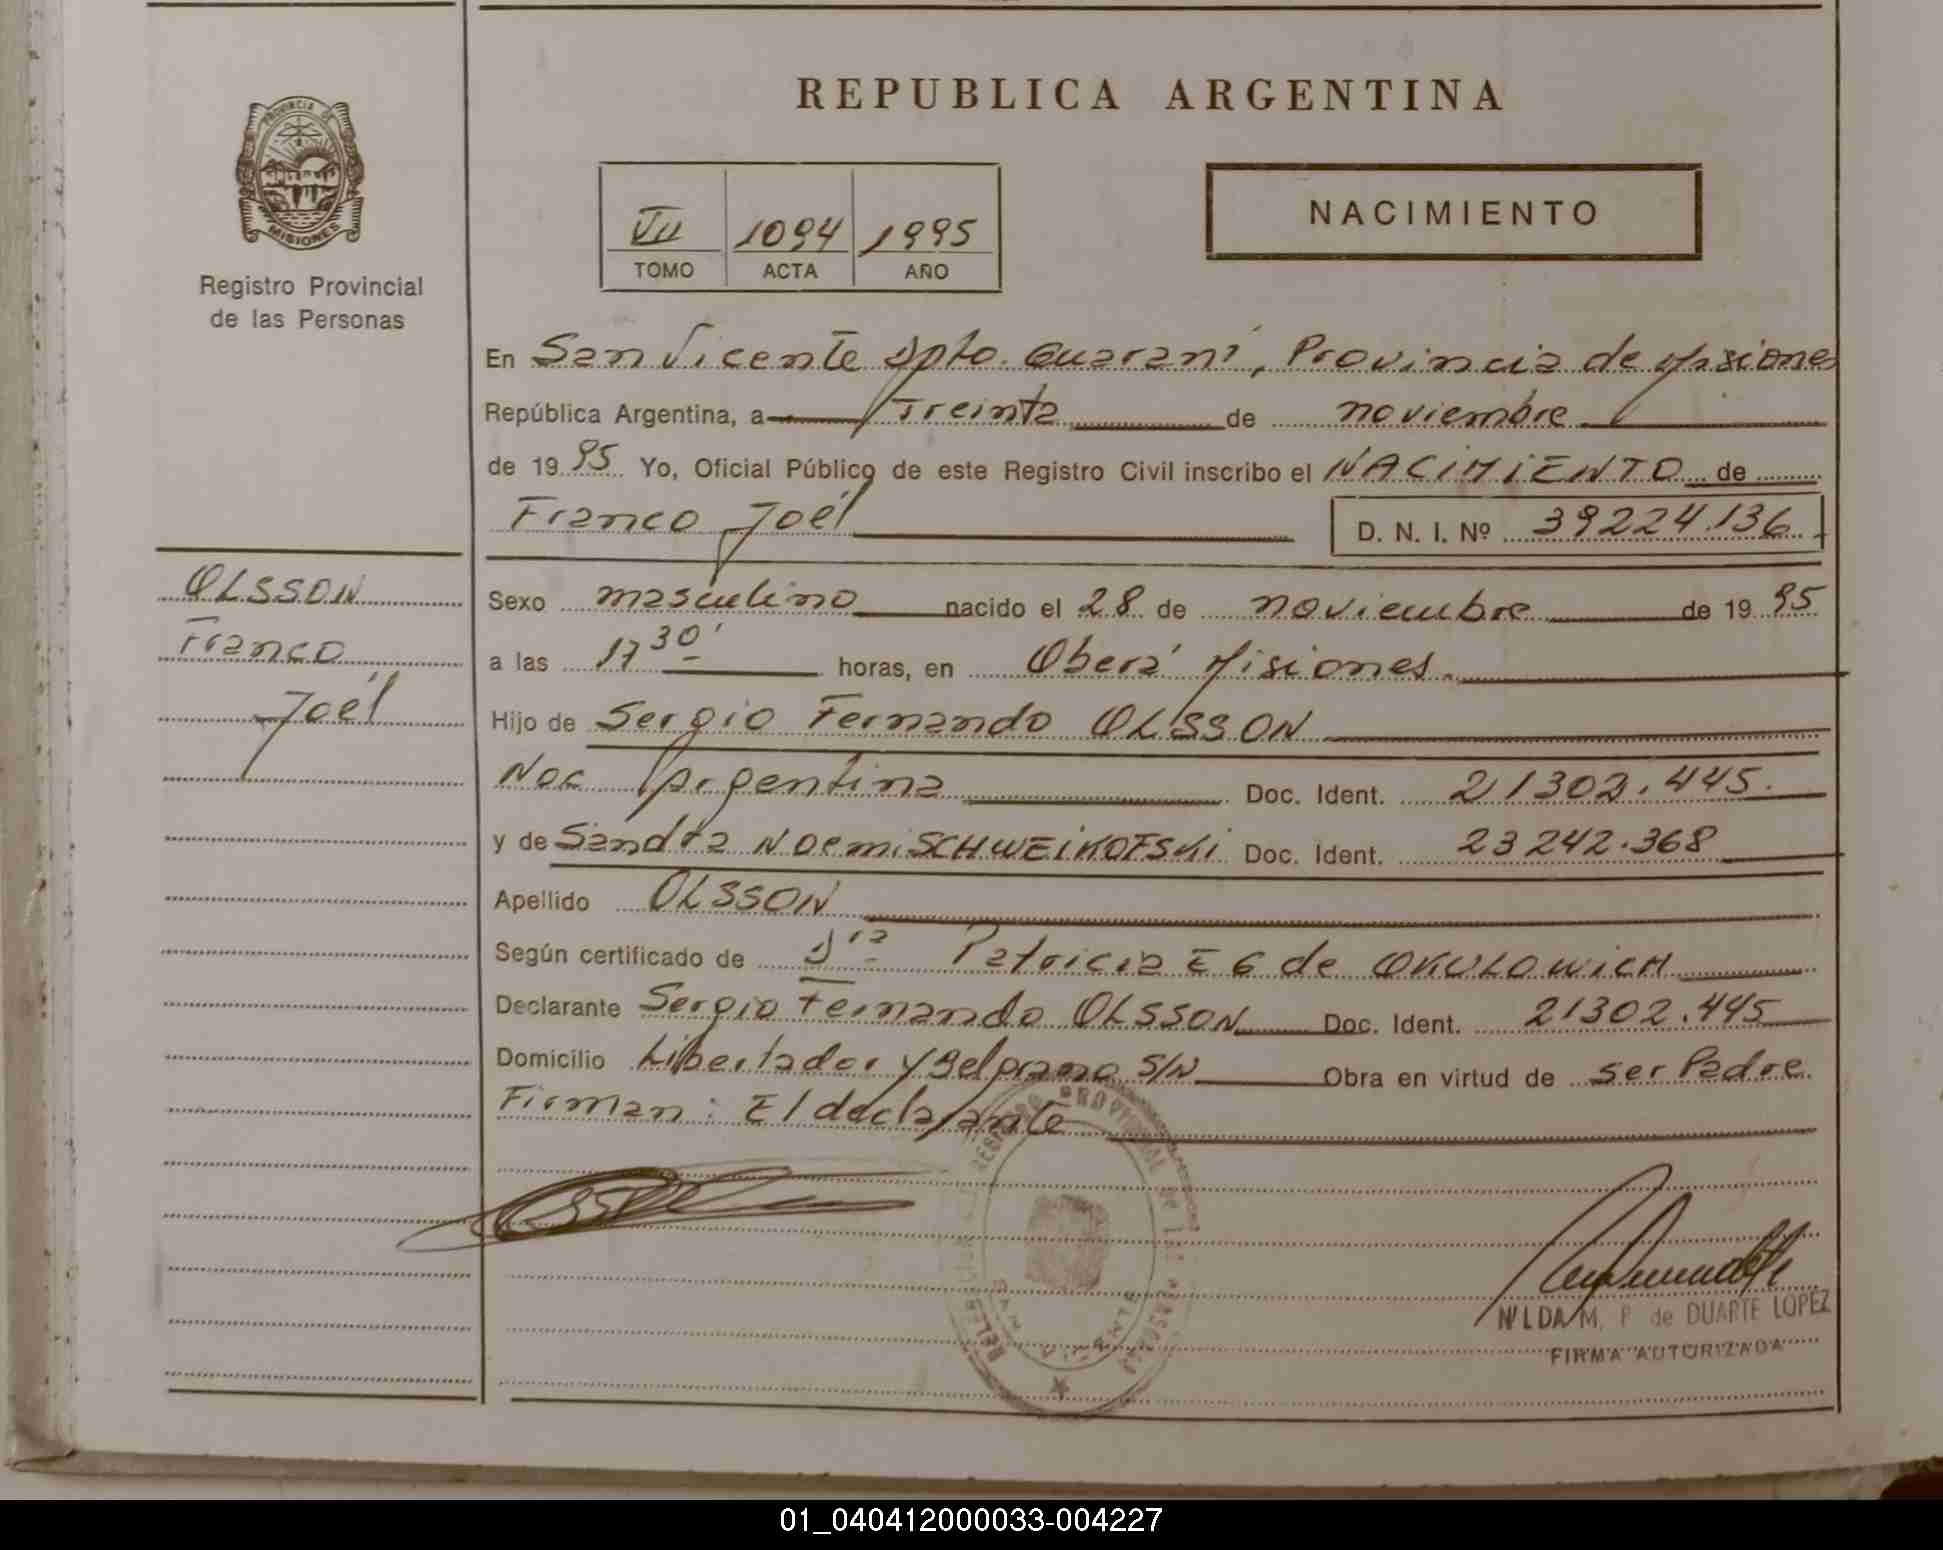 REPUBLICA ARGENTINA
PROVINCIA DE
MISIONES
Registro Provincial
de las Personas
VII 1094 1995
TOMO ACTA AÑO
NACIMIENTO
En San Vicente Dpto. Guaraní, Provincia de Misiones
República Argentina, a Treinta de noviembre
de 1995 Yo, Oficial Público de este Registro Civil inscribo el NACIMIENTO de
Franco Joél D. N. I. Nº 39224.136
OLSSON
Franco
Joél
Sexo masculino nacido el 28 de noviembre de 1995
a las 17 30' horas, en Oberá Misiones.
Hijo de Sergio Fernando OLSSON
Nac Argentina Doc. Ident. 21302.445.
y de Sandra Noemi SCHWEIKOFSKI Doc. Ident. 23242.368
Apellido OLSSON
Según certificado de Dra Patricia E G de OKULOWICH
Declarante Sergio Fernando OLSSON Doc. Ident. 21302.445
Domicilio Libertador y Belgrano S/N Obra en virtud de ser Padre.
Firman: El declarante
REGISTRO PROVINCIAL DE LAS PERSONAS
NILDA M. P. de DUARTE LOPEZ
FIRMA AUTORIZADA
01_040412000033-004227